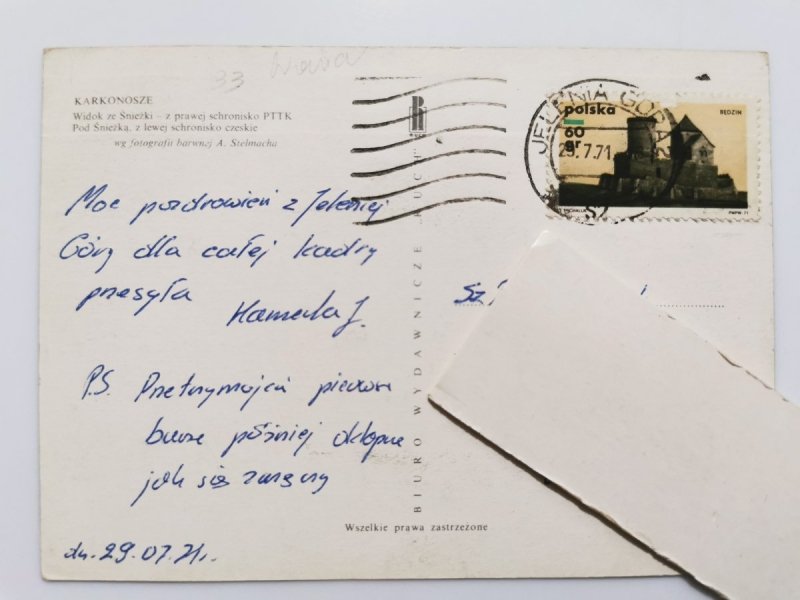 33
KARKONOSZE
Widok ze Śnieżki – z prawej schronisko PTTK
Pod Śnieżką, z lewej schronisko czeskie
wg fotografii barwnej A. Stelmacha
Moc pozdrowień z Jeleniej
Góry dla całej kadry
przesyła
P.S. Przetrzymajcie pierwsze
burze później
jak się
dn. 29.07.71r.
BIURO WYDAWNICZE „RUCH"
Wszelkie prawa zastrzeżone
JELENIA GÓRA 2
29.7.71
polska
60
gr
BĘDZIN
PWPW.71